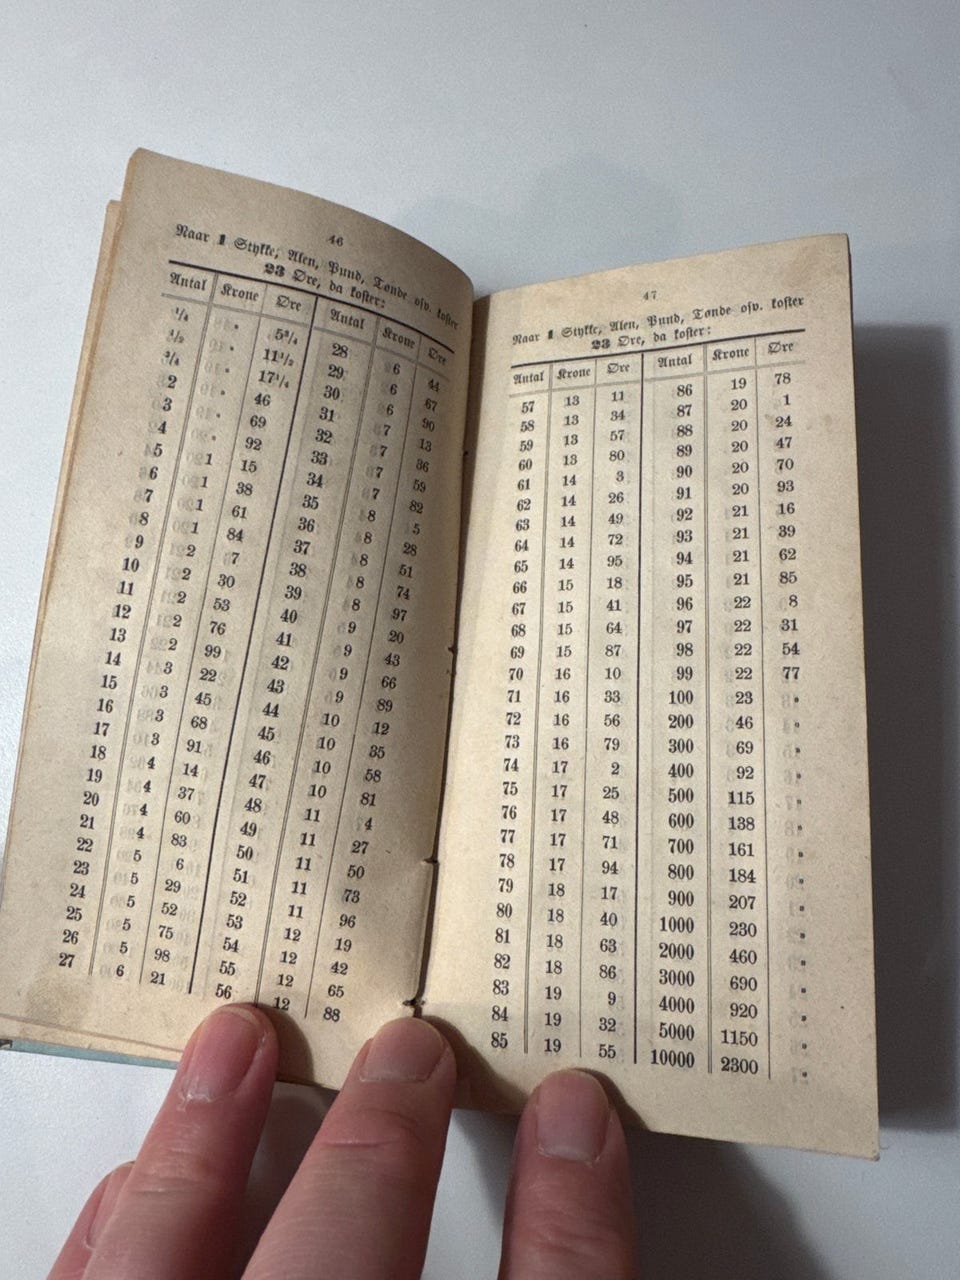 46
Naar 1 Stykke, Alen, Pund, Tønde osv. koster
23 Øre, da koster:
Antal Krone Øre Antal Krone Øre
1/4 " 5 3/4 28 6 44
1/2 " 11 1/2 29 6 67
3/4 " 17 1/4 30 6 90
2 " 46 31 7 13
3 " 69 32 7 36
4 " 92 33 7 59
5 1 15 34 7 82
6 1 38 35 8 5
7 1 61 36 8 28
8 1 84 37 8 51
9 2 7 38 8 74
10 2 30 39 8 97
11 2 53 40 9 20
12 2 76 41 9 43
13 2 99 42 9 66
14 3 22 43 9 89
15 3 45 44 10 12
16 3 68 45 10 35
17 3 91 46 10 58
18 4 14 47 10 81
19 4 37 48 11 4
20 4 60 49 11 27
21 4 83 50 11 50
22 5 6 51 11 73
23 5 29 52 11 96
24 5 52 53 12 19
25 5 75 54 12 42
26 5 98 55 12 65
27 6 21 56 12 88
47
Naar 1 Stykke, Alen, Pund, Tønde osv. koster
23 Øre, da koster:
Antal Krone Øre Antal Krone Øre
57 13 11 86 19 78
58 13 34 87 20 1
59 13 57 88 20 24
60 13 80 89 20 47
61 14 3 90 20 70
62 14 26 91 20 93
63 14 49 92 21 16
64 14 72 93 21 39
65 14 95 94 21 62
66 15 18 95 21 85
67 15 41 96 22 8
68 15 64 97 22 31
69 15 87 98 22 54
70 16 10 99 22 77
71 16 33 100 23 "
72 16 56 200 46 "
73 16 79 300 69 "
74 17 2 400 92 "
75 17 25 500 115 "
76 17 48 600 138 "
77 17 71 700 161 "
78 17 94 800 184 "
79 18 17 900 207 "
80 18 40 1000 230 "
81 18 63 2000 460 "
82 18 86 3000 690 "
83 19 9 4000 920 "
84 19 32 5000 1150 "
85 19 55 10000 2300 "